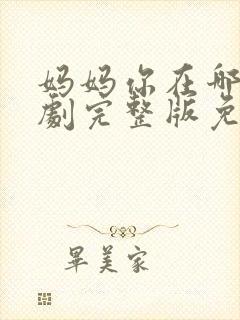 妈妈你在哪
劇完整版免
畢美家